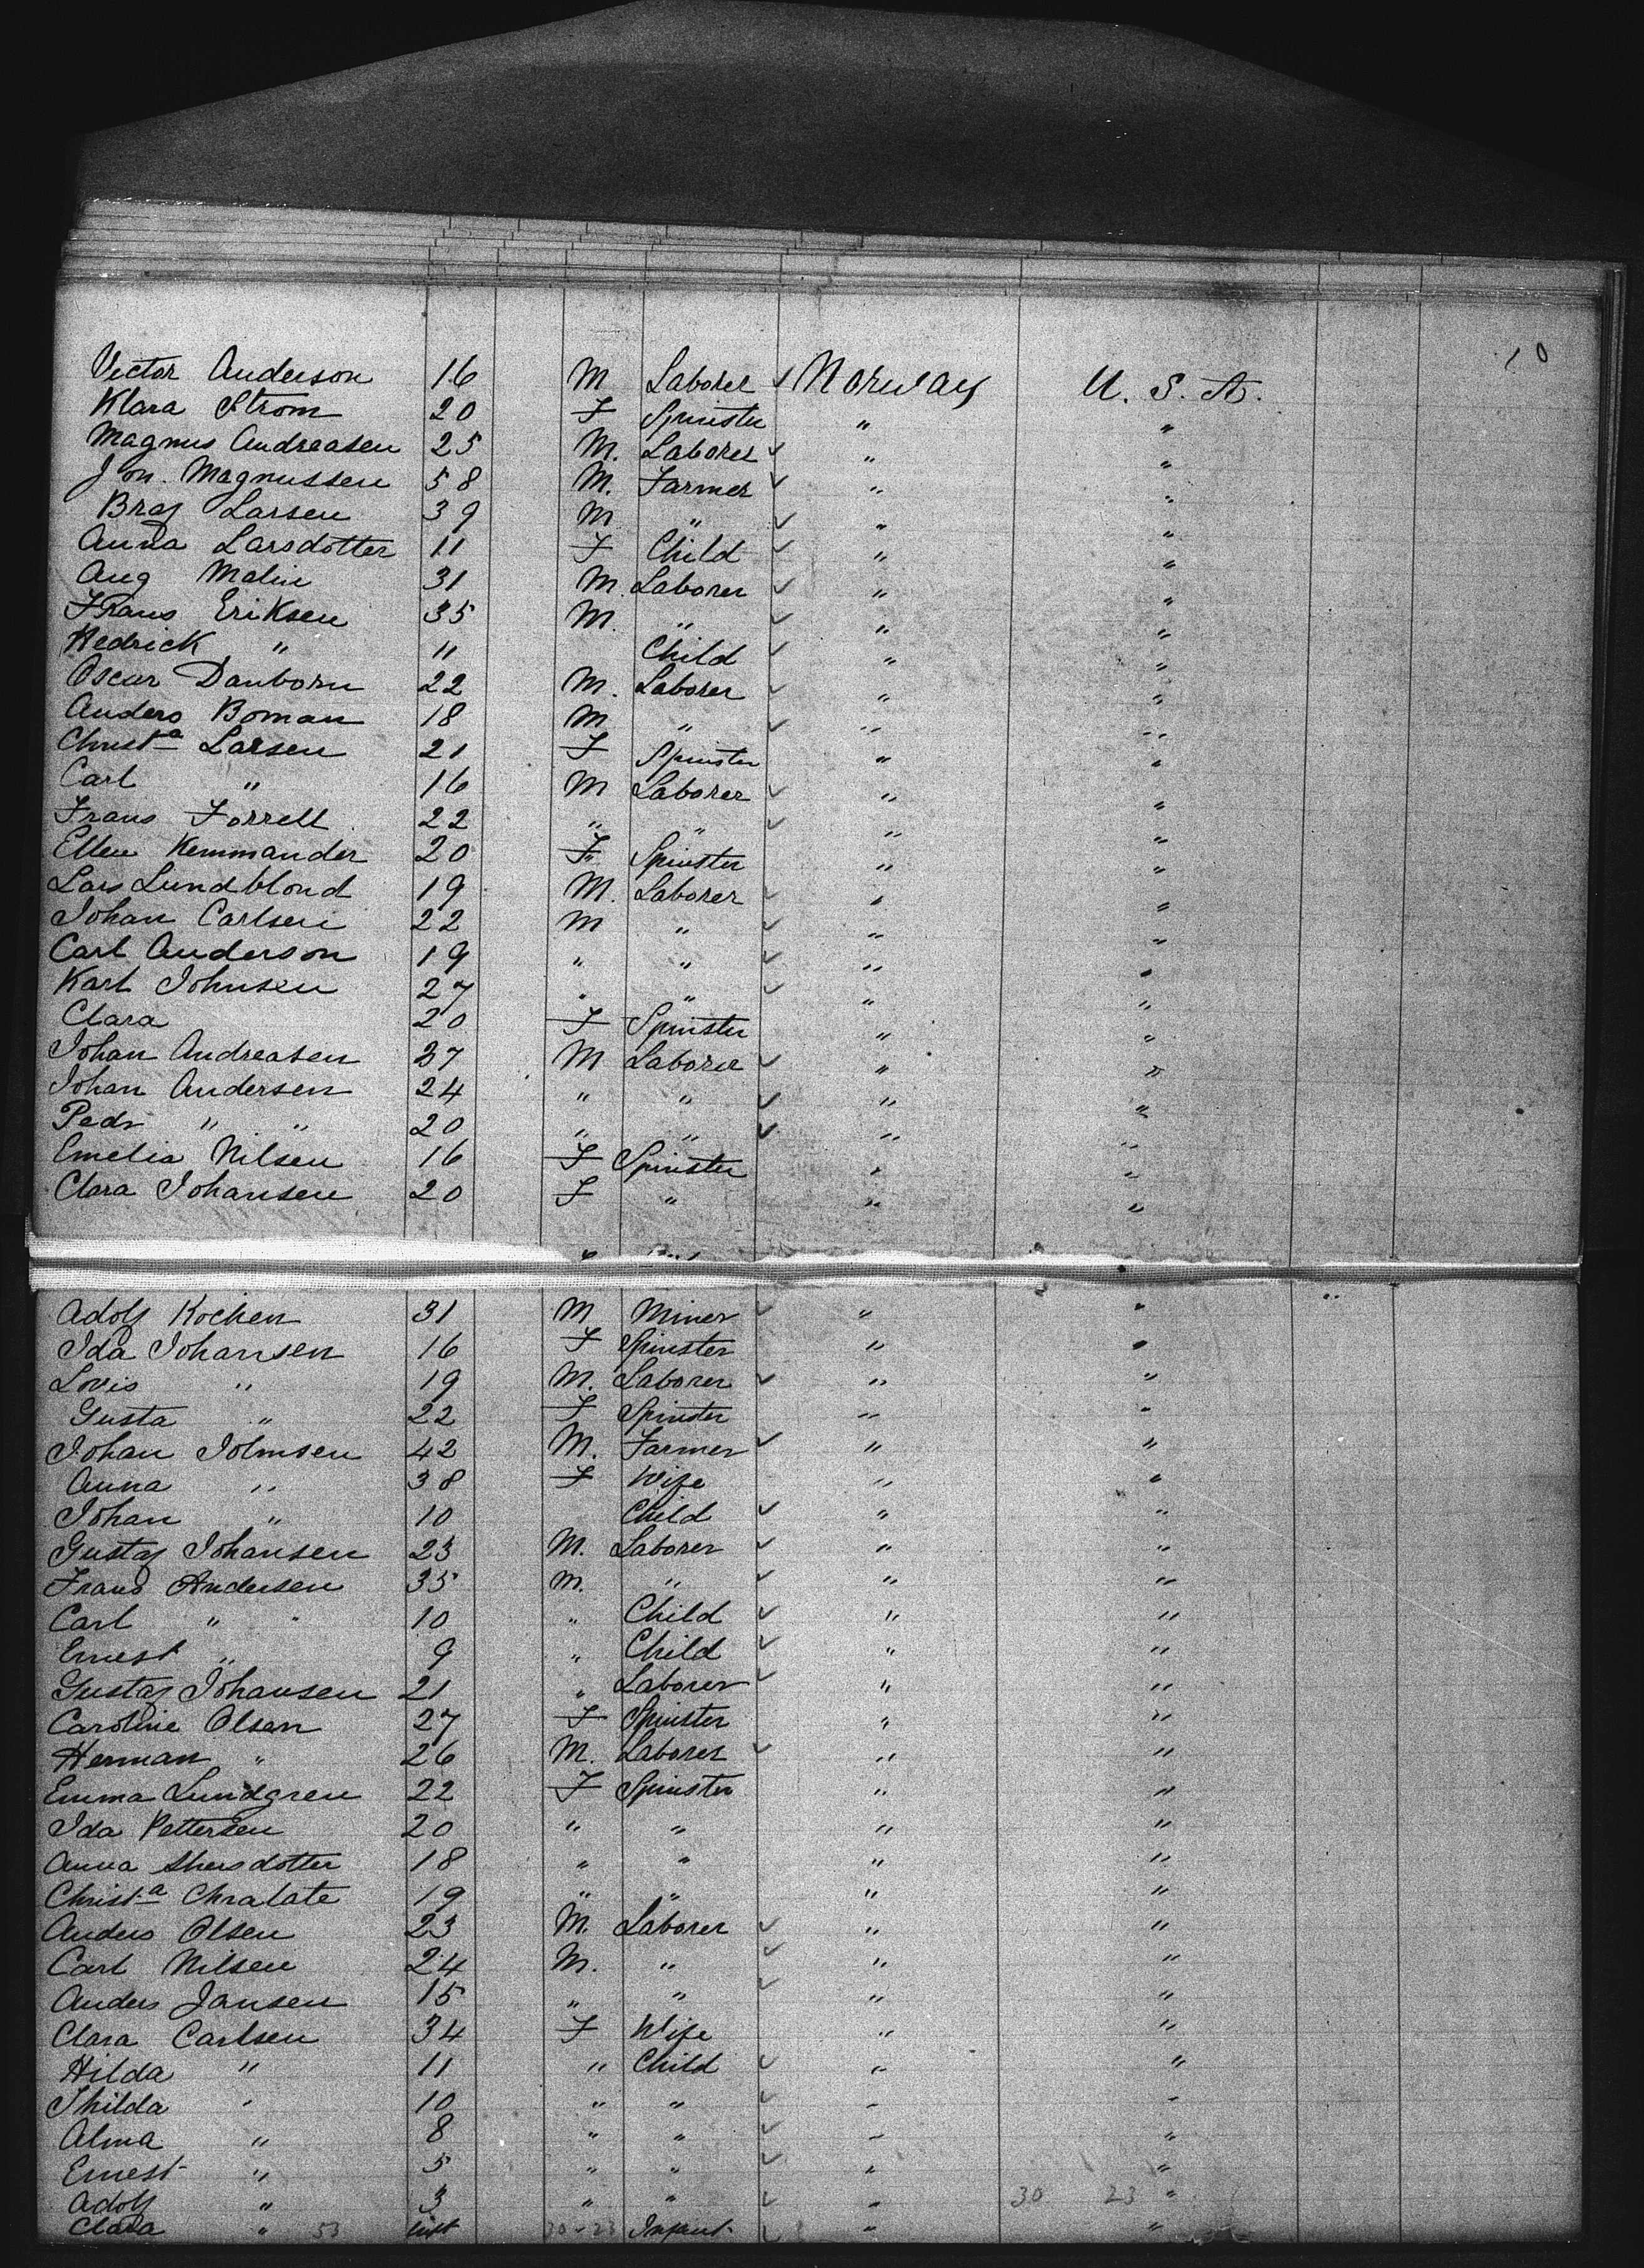 10
Victor Anderson 16 M Laborer ✓ Norway U. S. A.
Klara Strom 20 F Spinster " "
Magnus Andreasen 25 M. Laborer ✓ " "
Jon. Magnussen 58 M. Farmer ✓ " "
Larsen 39 M " ✓ " "
Anna Larsdotter 11 F Child ✓ " "
Aug Malin 31 M. Laborer ✓ " "
Frans Eriksen 35 M. " ✓ " "
Hedrick " 11 Child ✓ " "
Oscar Danborn 22 M. Laborer ✓ " "
Anders Boman 18 M " ✓ " "
Christa Larsen 21 F Spinster " "
Carl " 16 M Laborer ✓ " "
Frans Forrell 22 " " ✓ " "
Ellen Kemmander 20 F Spinster " "
Lars Lundblond 19 M. Laborer ✓ " "
Johan Carlsen 22 M " ✓ " "
Carl Anderson 19 " " ✓ " "
Karl Johnsen 27 " " ✓ " "
Clara 20 F Spinster " "
Johan Andreasen 37 M Laborer ✓ " "
Johan Andersen 24 " " ✓ " "
Pedr " " 20 " " ✓ " "
Emelia Nilsen 16 F Spinster " "
Clara Johansen 20 F " " "
Adolf Kochen 31 M Miner ✓ " "
Ida Johansen 16 F Spinster " "
Lovis " 19 M. Laborer ✓ " "
Gusta " 22 F Spinster " "
Johan Johnsen 42 M. Farmer ✓ " "
Anna " 38 F Wife " "
Johan " 10 Child ✓ " "
Gustaf Johansen 23 M. Laborer ✓ " "
Frans Andersen 35 M. " ✓ " "
Carl " " 10 " Child ✓ " "
Ernest " 9 " Child ✓ " "
Gustaf Johansen 21 " Laborer ✓ " "
Caroline Olsen 27 F Spinster " "
Herman " 26 M. Laborer ✓ " "
Emma Lundgren 22 F Spinster " "
Ida Pettersen 20 " " " "
Anna 18 " " " "
Christa Chralate 19 " " " "
Anders Olsen 23 M. Laborer ✓ " "
Carl Nilsen 24 M. " ✓ " "
Anders Jansen 15 " " ✓ " "
Clara Carlsen 34 F Wife " "
Hilda " 11 " Child ✓ " "
Thilda " 10 " " ✓ " "
Alma " 8 " " ✓ " "
Ernest " 5 " " ✓ " "
Adolf " 3 " " ✓ " 30 23 "
Clara " 53 inft 30-23 Infant ✓ " "